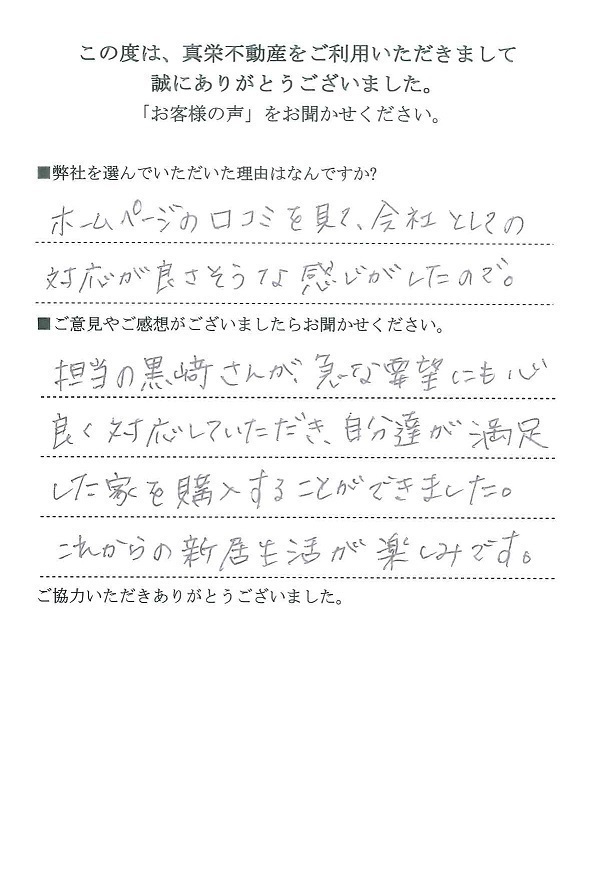 この度は、真栄不動産をご利用いただきまして
誠にありがとうございました。
「お客様の声」をお聞かせください。
■弊社を選んでいただいた理由はなんですか?
ホームページの口コミを見て、会社としての
対応が良さそうな感じがしたので。
■ご意見やご感想がございましたらお聞かせください。
担当の黒﨑さんが、急な要望にも心
良く対応していただき、自分達が満足
した家を購入することができました。
これからの新居生活が楽しみです。
ご協力いただきありがとうございました。